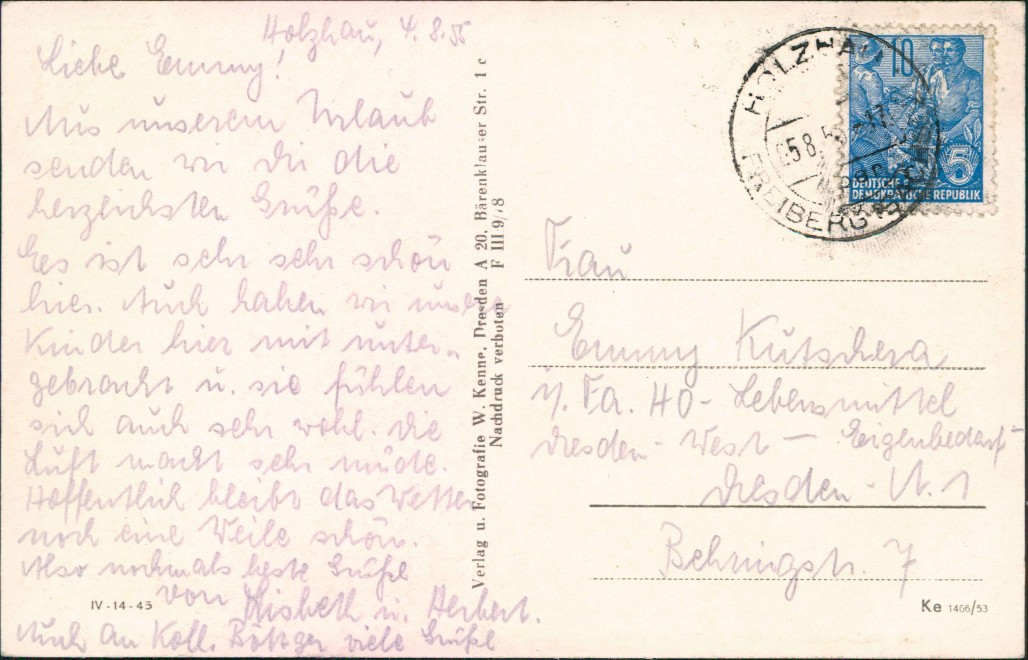 Holzhau, 4.8.55
Liebe Emmy!
Aus unserem Urlaub
senden wir Dir die
herzlichsten Grüße.
Es ist sehr sehr schön
hier. Auch haben wir unsere
Kinder hier mit unter-
gebracht u. sie fühlen
sich auch sehr wohl. Die
Luft macht sehr müde.
Hoffentlich bleibt das Wetter
noch eine Weile schön.
Also nochmals beste Grüße
von Lisbeth u. Herbert.
Auch an Koll. Böttger viele Grüße
IV-14-45
Verlag u. Fotografie W. Kenne, Dresden A 20, Bärenklauser Str. 1 c
Nachdruck verboten F III 9/48
HOLZHAU
5.8.
FREIBERG
10
5
DEUTSCHE
DEMOKRATISCHE REPUBLIK
Frau
Emmy Kutschera
i. Fa. HO-Lebensmittel
Dresden-West – Eigenbedarf
Dresden-A. 1
Behringstr. 7
Ke 1466/53